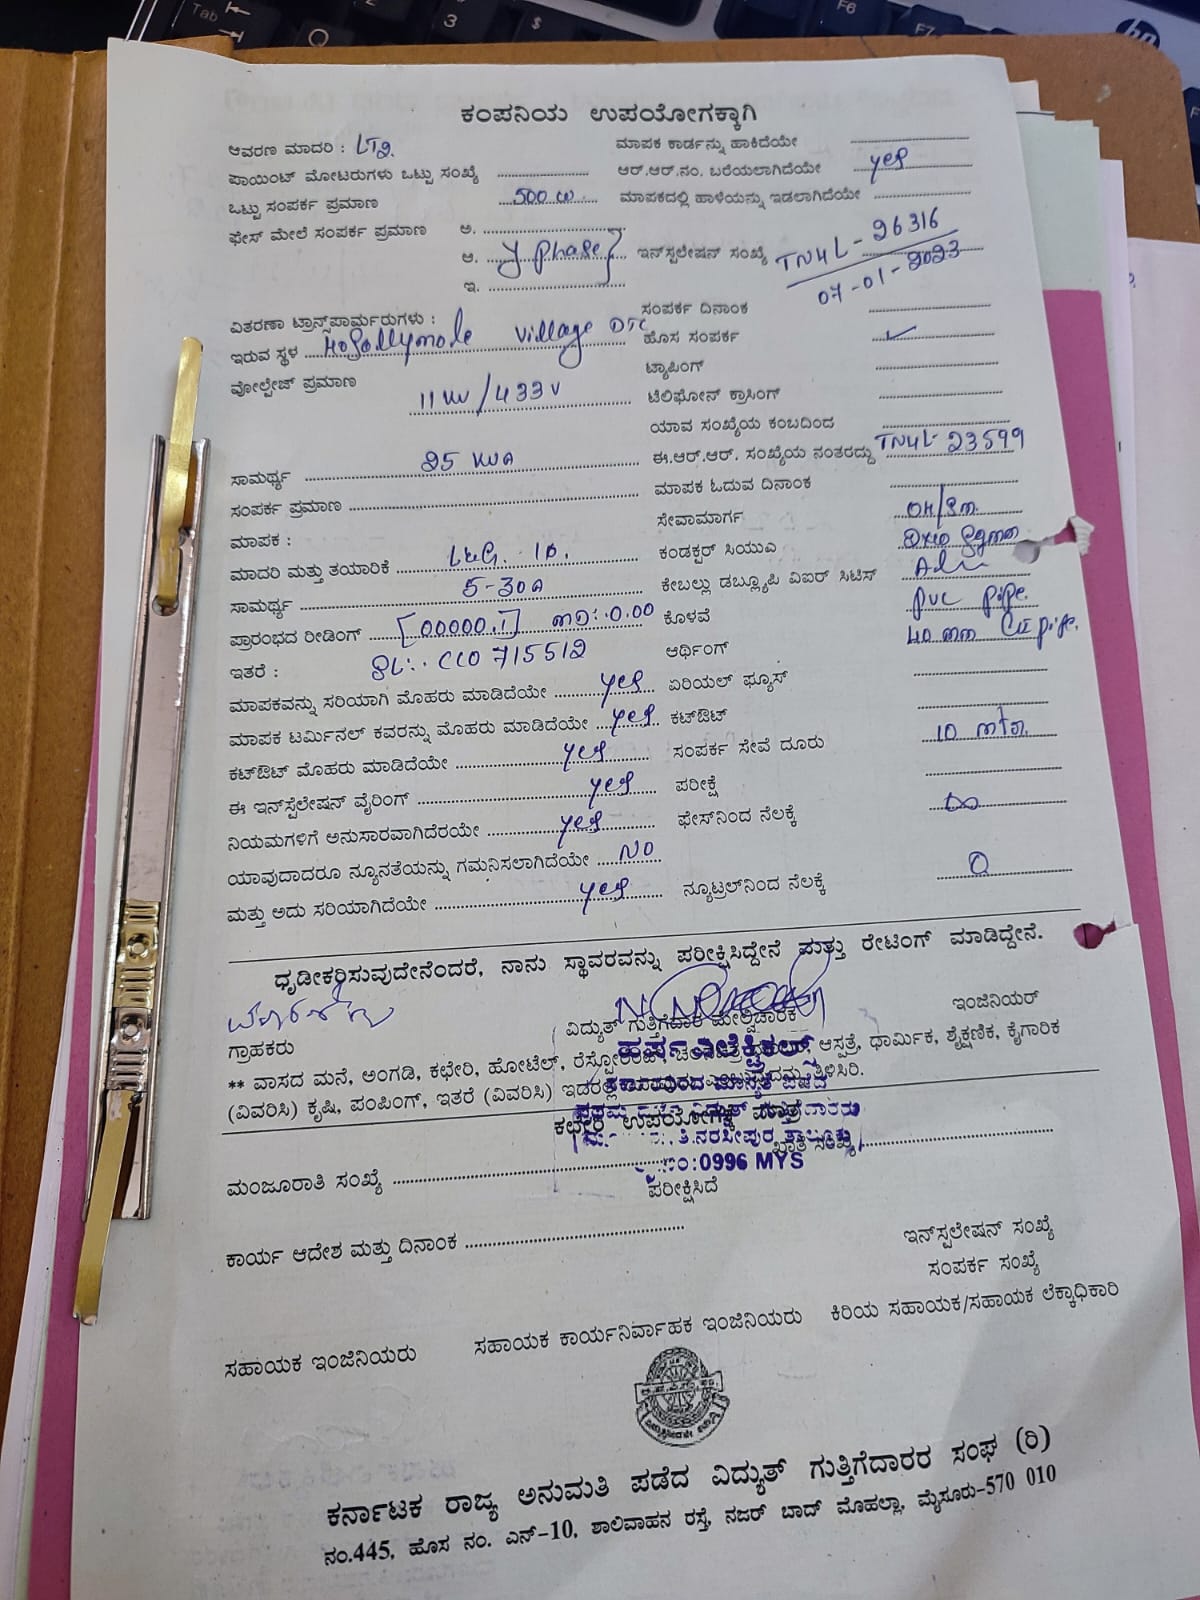 ಕಂಪನಿಯ ಉಪಯೋಗಕ್ಕಾಗಿ
ಆವರಣ ಮಾದರಿ : LT2.
ಮಾಪಕ ಕಾರ್ಡನ್ನು ಹಾಕಿದೆಯೇ
ಪಾಯಿಂಟ್ ಮೋಟರುಗಳು ಒಟ್ಟು ಸಂಖ್ಯೆ
ಆರ್.ಆರ್.ನಂ. ಬರೆಯಲಾಗಿದೆಯೇ yes
ಒಟ್ಟು ಸಂಪರ್ಕ ಪ್ರಮಾಣ 500 W
ಮಾಪಕದಲ್ಲಿ ಹಾಳೆಯನ್ನು ಇಡಲಾಗಿದೆಯೇ
ಫೇಸ್ ಮೇಲೆ ಸಂಪರ್ಕ ಪ್ರಮಾಣ ಅ.
ಆ. Y phase }
ಇನ್‌ಸ್ಟಲೇಷನ್ ಸಂಖ್ಯೆ TN4L - 26316
07-01-2023
ಇ.
ಸಂಪರ್ಕ ದಿನಾಂಕ
ವಿತರಣಾ ಟ್ರಾನ್ಸ್‌ಪಾರ್ಮರುಗಳು :
ಇರುವ ಸ್ಥಳ Hosallymole Village DTC
ಹೊಸ ಸಂಪರ್ಕ ✓
ವೋಲ್ಟೇಜ್ ಪ್ರಮಾಣ 11 KV/433 V
ಟ್ಯಾಪಿಂಗ್
ಟೆಲಿಫೋನ್ ಕ್ರಾಸಿಂಗ್
ಯಾವ ಸಂಖ್ಯೆಯ ಕಂಬದಿಂದ
ಸಾಮರ್ಥ್ಯ 25 KVA
ಈ.ಆರ್.ಆರ್. ಸಂಖ್ಯೆಯ ನಂತರದ್ದು TN4L- 23599
ಸಂಪರ್ಕ ಪ್ರಮಾಣ
ಮಾಪಕ ಓದುವ ದಿನಾಂಕ
ಮಾಪಕ :
ಸೇವಾಮಾರ್ಗ
ಮಾದರಿ ಮತ್ತು ತಯಾರಿಕೆ L&G.
ಕಂಡಕ್ಟರ್ ಸಿಯುಎ
ಸಾಮರ್ಥ್ಯ 5-30A
ಕೇಬಲ್ಲು ಡಬ್ಲ್ಯೂಪಿ ವಿಐರ್ ಸಿಟಿಸ್
ಪ್ರಾರಂಭದ ರೀಡಿಂಗ್ [00000.1] MD: 0.00
ಕೊಳವೆ PVC pipe.
ಇತರೆ : SL:. CLO 715512
ಆರ್ಥಿಂಗ್ 40 mm GI pipe.
ಮಾಪಕವನ್ನು ಸರಿಯಾಗಿ ಮೊಹರು ಮಾಡಿದೆಯೇ yes
ಏರಿಯಲ್ ಫ್ಯೂಸ್
ಮಾಪಕ ಟರ್ಮಿನಲ್ ಕವರನ್ನು ಮೊಹರು ಮಾಡಿದೆಯೇ yes
ಕಟ್‌ಔಟ್
ಕಟ್‌ಔಟ್ ಮೊಹರು ಮಾಡಿದೆಯೇ yes
ಸಂಪರ್ಕ ಸೇವೆ ದೂರು 10 mtr.
ಈ ಇನ್‌ಸ್ಟಲೇಷನ್ ವೈರಿಂಗ್ yes
ಪರೀಕ್ಷೆ
ನಿಯಮಗಳಿಗೆ ಅನುಸಾರವಾಗಿದೆರಯೇ yes
ಫೇಸ್‌ನಿಂದ ನೆಲಕ್ಕೆ ∞
ಯಾವುದಾದರೂ ನ್ಯೂನತೆಯನ್ನು ಗಮನಿಸಲಾಗಿದೆಯೇ NO
ಮತ್ತು ಅದು ಸರಿಯಾಗಿದೆಯೇ yes
ನ್ಯೂಟ್ರಲ್‌ನಿಂದ ನೆಲಕ್ಕೆ 0
ಧೃಡೀಕರಿಸುವುದೇನೆಂದರೆ, ನಾನು ಸ್ಥಾವರವನ್ನು ಪರೀಕ್ಷಿಸಿದ್ದೇನೆ ಮತ್ತು ರೇಟಿಂಗ್ ಮಾಡಿದ್ದೇನೆ.
ಗ್ರಾಹಕರು
ವಿದ್ಯುತ್ ಗುತ್ತಿಗೆದಾರ ಮೇಲ್ವಿಚಾರಕ
ಇಂಜಿನಿಯರ್
ಹರ್ಷ ಎಲೆಕ್ಟ್ರಿಕಲ್ಸ್
** ವಾಸದ ಮನೆ, ಅಂಗಡಿ, ಕಛೇರಿ, ಹೋಟೆಲ್, ಆಸ್ಪತ್ರೆ, ಧಾರ್ಮಿಕ, ಶೈಕ್ಷಣಿಕ, ಕೈಗಾರಿಕ
(ವಿವರಿಸಿ) ಕೃಷಿ, ಪಂಪಿಂಗ್, ಇತರೆ (ವಿವರಿಸಿ) ತಿಳಿಸಿರಿ.
ಕಛೇರಿ ಉಪಯೋಗಕ್ಕೆ ಮಾತ್ರ
ತಿ.ನರಸೀಪುರ ತಾಲ್ಲೂಕು
ಖಾತೆ ಸಂಖ್ಯೆ
ನಂ:0996 MYS
ಮಂಜೂರಾತಿ ಸಂಖ್ಯೆ
ಪರೀಕ್ಷಿಸಿದೆ
ಕಾರ್ಯ ಆದೇಶ ಮತ್ತು ದಿನಾಂಕ
ಇನ್‌ಸ್ಟಲೇಷನ್ ಸಂಖ್ಯೆ
ಸಂಪರ್ಕ ಸಂಖ್ಯೆ
ಸಹಾಯಕ ಇಂಜಿನಿಯರು
ಸಹಾಯಕ ಕಾರ್ಯನಿರ್ವಾಹಕ ಇಂಜಿನಿಯರು
ಕಿರಿಯ ಸಹಾಯಕ/ಸಹಾಯಕ ಲೆಕ್ಕಾಧಿಕಾರಿ
ಕರ್ನಾಟಕ ರಾಜ್ಯ ಅನುಮತಿ ಪಡೆದ ವಿದ್ಯುತ್ ಗುತ್ತಿಗೆದಾರರ ಸಂಘ (ರಿ)
ನಂ.445, ಹೊಸ ನಂ. ಎನ್-10, ಶಾಲಿವಾಹನ ರಸ್ತೆ, ನಜರ್ ಬಾದ್ ಮೊಹಲ್ಲಾ, ಮೈಸೂರು-570 010